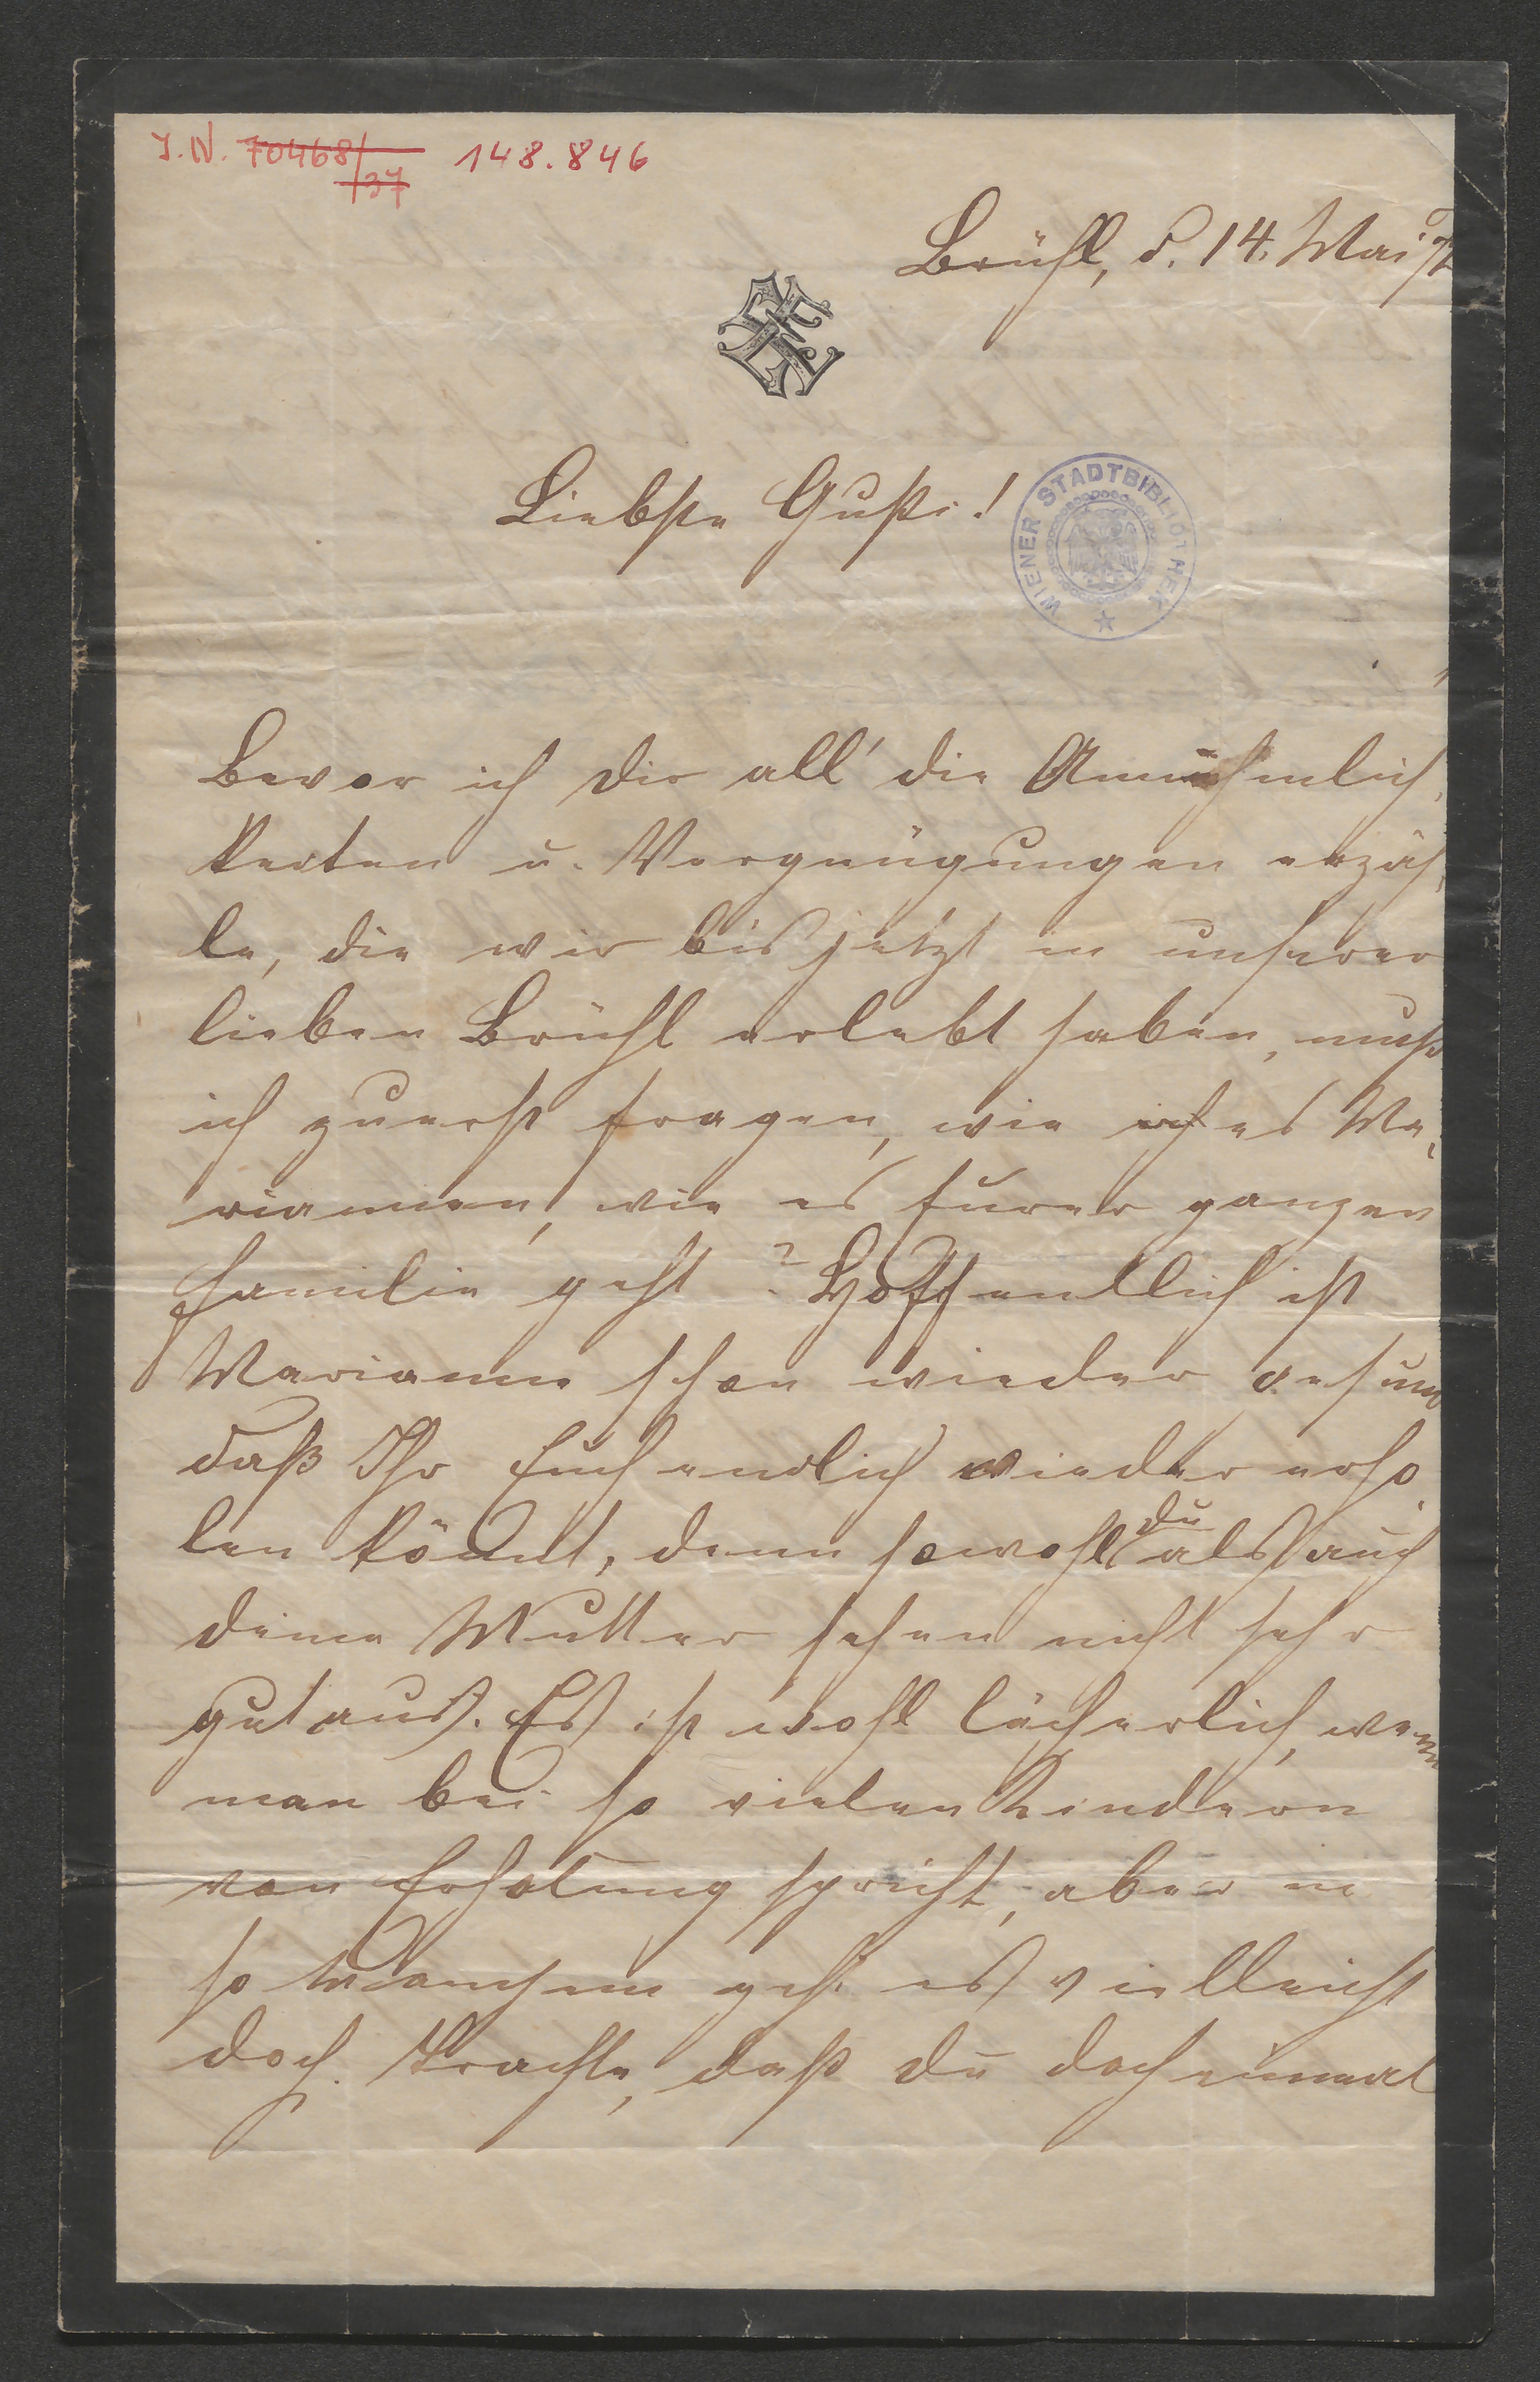 J.N. 70468/37 148.846
Brühl, d. 14. Mai
Liebste Gusti!
WIENER STADTBIBLIOTHEK
Bevor ich dir all' die Annehmlich-
keiten u. Vergnügungen erzäh-
le, die wir bis jetzt in unserer
lieben Brühl erlebt haben, muß
ich zuerst fragen, wie es Ma-
riannen, wie es Eurer ganzen
Familie geht? Hoffentlich ist
Marianne schon wieder gesund
daß Ihr Euch endlich wieder erho-
len könnt, denn sowohl du als auch
deine Mutter sehen nicht sehr
gut aus. Es ist wohl lächerlich, wenn
man bei so vielen Kindern
von Erholung spricht, aber in
so Manchem geht es vielleicht
doch. Trachte, daß du doch einmal